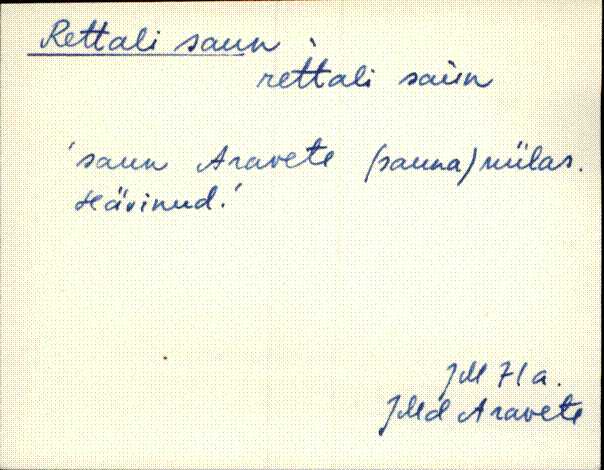 Rettali saun
rèttali saùn
'saun Aravete (sauna)külas.
Hävinud.'
JMd Aravete